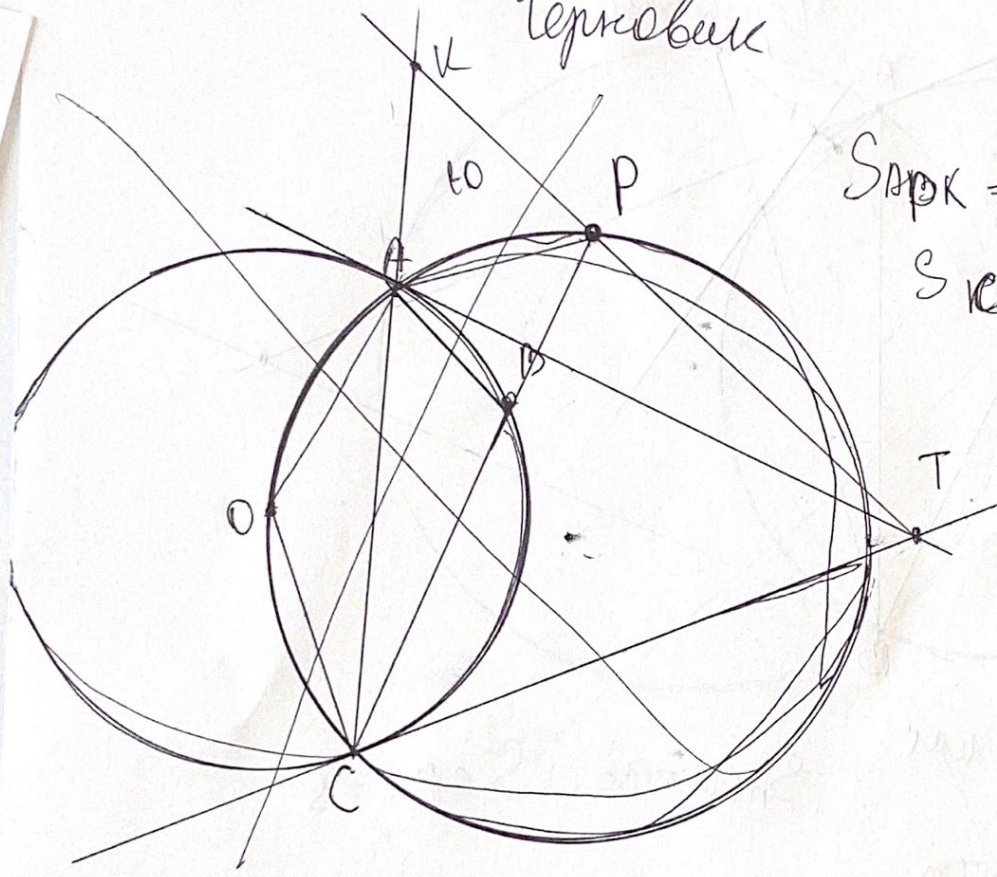 Черновик
K
10 P
S APK =
A
S K
B
T
O
C